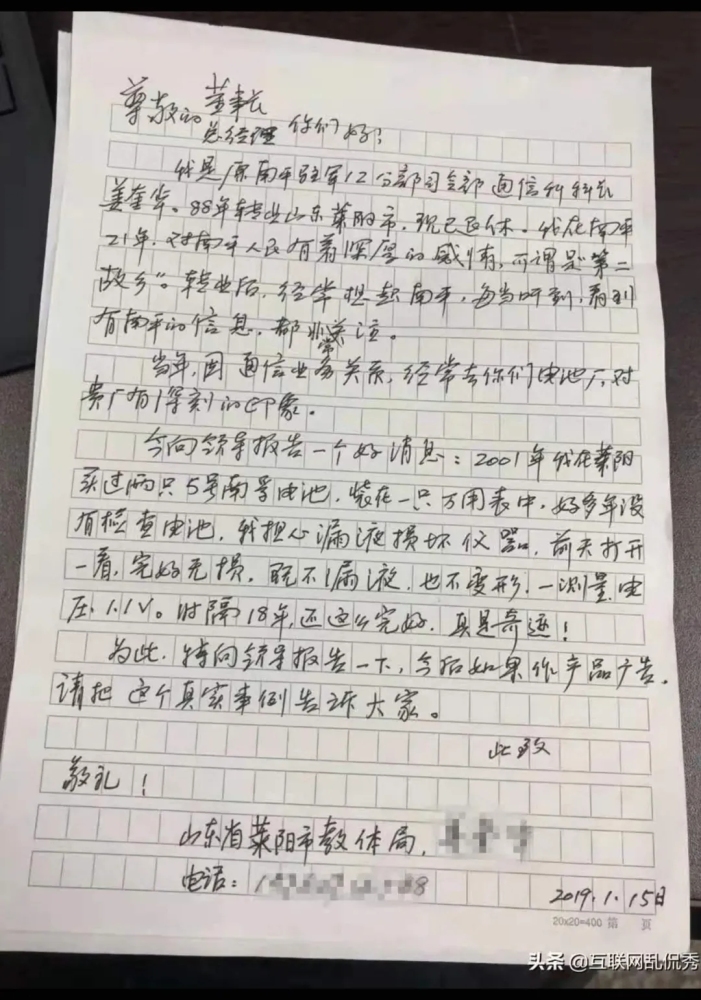 尊敬的董事长
总经理 你们好!
我是原南平驻军12分部司令部通信科科长
姜奎华。88年转业山东莱阳市,现已退休。我在南平
21年,对南平人民有着深厚的感情,可谓是“第二
故乡”。转业后,经常想起南平,每当听到,看到
有南平的信息,都非常关注。
当年,因通信业务关系,经常去你们电池厂,对
贵厂有深刻的印象。
今向领导报告一个好消息:2001年我在莱阳
买过两只5号南孚电池,装在一只万用表中,好多年没
有检查电池,我担心漏液损坏仪器,前天打开
一看,完好无损,既不漏液,也不变形,一测量,电
压1.1V。时隔18年,还这么完好,真是奇迹!
为此,特向领导报告一下,今后如果作产品广告,
请把这个真实事例告诉大家。
此致
敬礼!
山东省莱阳市教体局,
电话:
2019.1.15日
20x20=400 第 页
头条@互联网乱侃秀